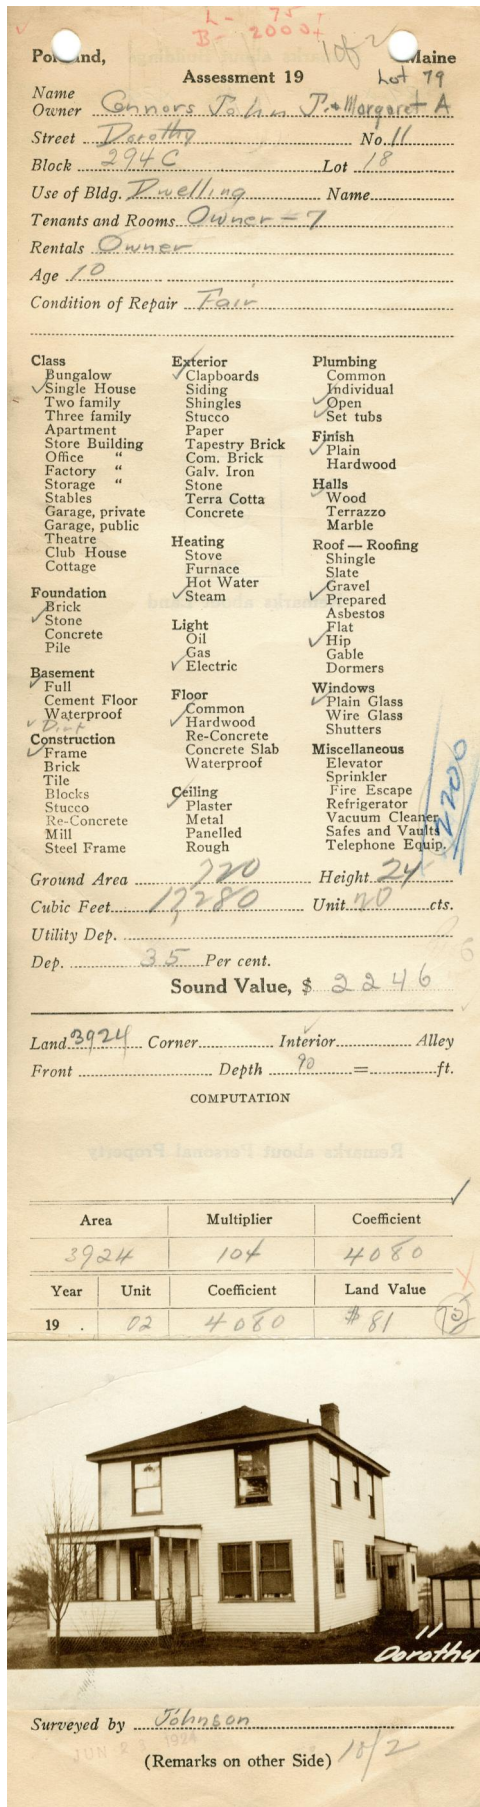 L- 75
B- 2000+
1 of 2
Portland, Maine
Assessment 19
Lot 79
Name
Owner Connors John P. & Margaret A
Street Dorothy No. 11
Block 294 C Lot 18
Use of Bldg. Dwelling Name
Tenants and Rooms Owner - 7
Rentals Owner
Age 10
Condition of Repair Fair
Class
Bungalow
Single House
Two family
Three family
Apartment
Store Building
Office "
Factory "
Storage "
Stables
Garage, private
Garage, public
Theatre
Club House
Cottage
Foundation
Brick
Stone
Concrete
Pile
Basement
Full
Cement Floor
Waterproof
Dirt
Construction
Frame
Brick
Tile
Blocks
Stucco
Re-Concrete
Mill
Steel Frame
Exterior
Clapboards
Siding
Shingles
Stucco
Paper
Tapestry Brick
Com. Brick
Galv. Iron
Stone
Terra Cotta
Concrete
Heating
Stove
Furnace
Hot Water
Steam
Light
Oil
Gas
Electric
Floor
Common
Hardwood
Re-Concrete
Concrete Slab
Waterproof
Ceiling
Plaster
Metal
Panelled
Rough
Plumbing
Common
Individual
Open
Set tubs
Finish
Plain
Hardwood
Halls
Wood
Terrazzo
Marble
Roof — Roofing
Shingle
Slate
Gravel
Prepared
Asbestos
Flat
Hip
Gable
Dormers
Windows
Plain Glass
Wire Glass
Shutters
Miscellaneous
Elevator
Sprinkler
Fire Escape
Refrigerator
Vacuum Cleaner
Safes and Vaults
Telephone Equip.
2200
Ground Area 720 Height 24
Cubic Feet 17,280 Unit 20 cts.
Utility Dep.
Dep. 35 Per cent.
Sound Value, $ 2246
Land 3924 Corner Interior Alley
Front Depth 90 = ft.
COMPUTATION
Area Multiplier Coefficient
3924 104 4080
Year Unit Coefficient Land Value
19 . 02 4080 $81
75
11
Dorothy
Surveyed by Johnson
JUN 2 1924
(Remarks on other Side) 10/2